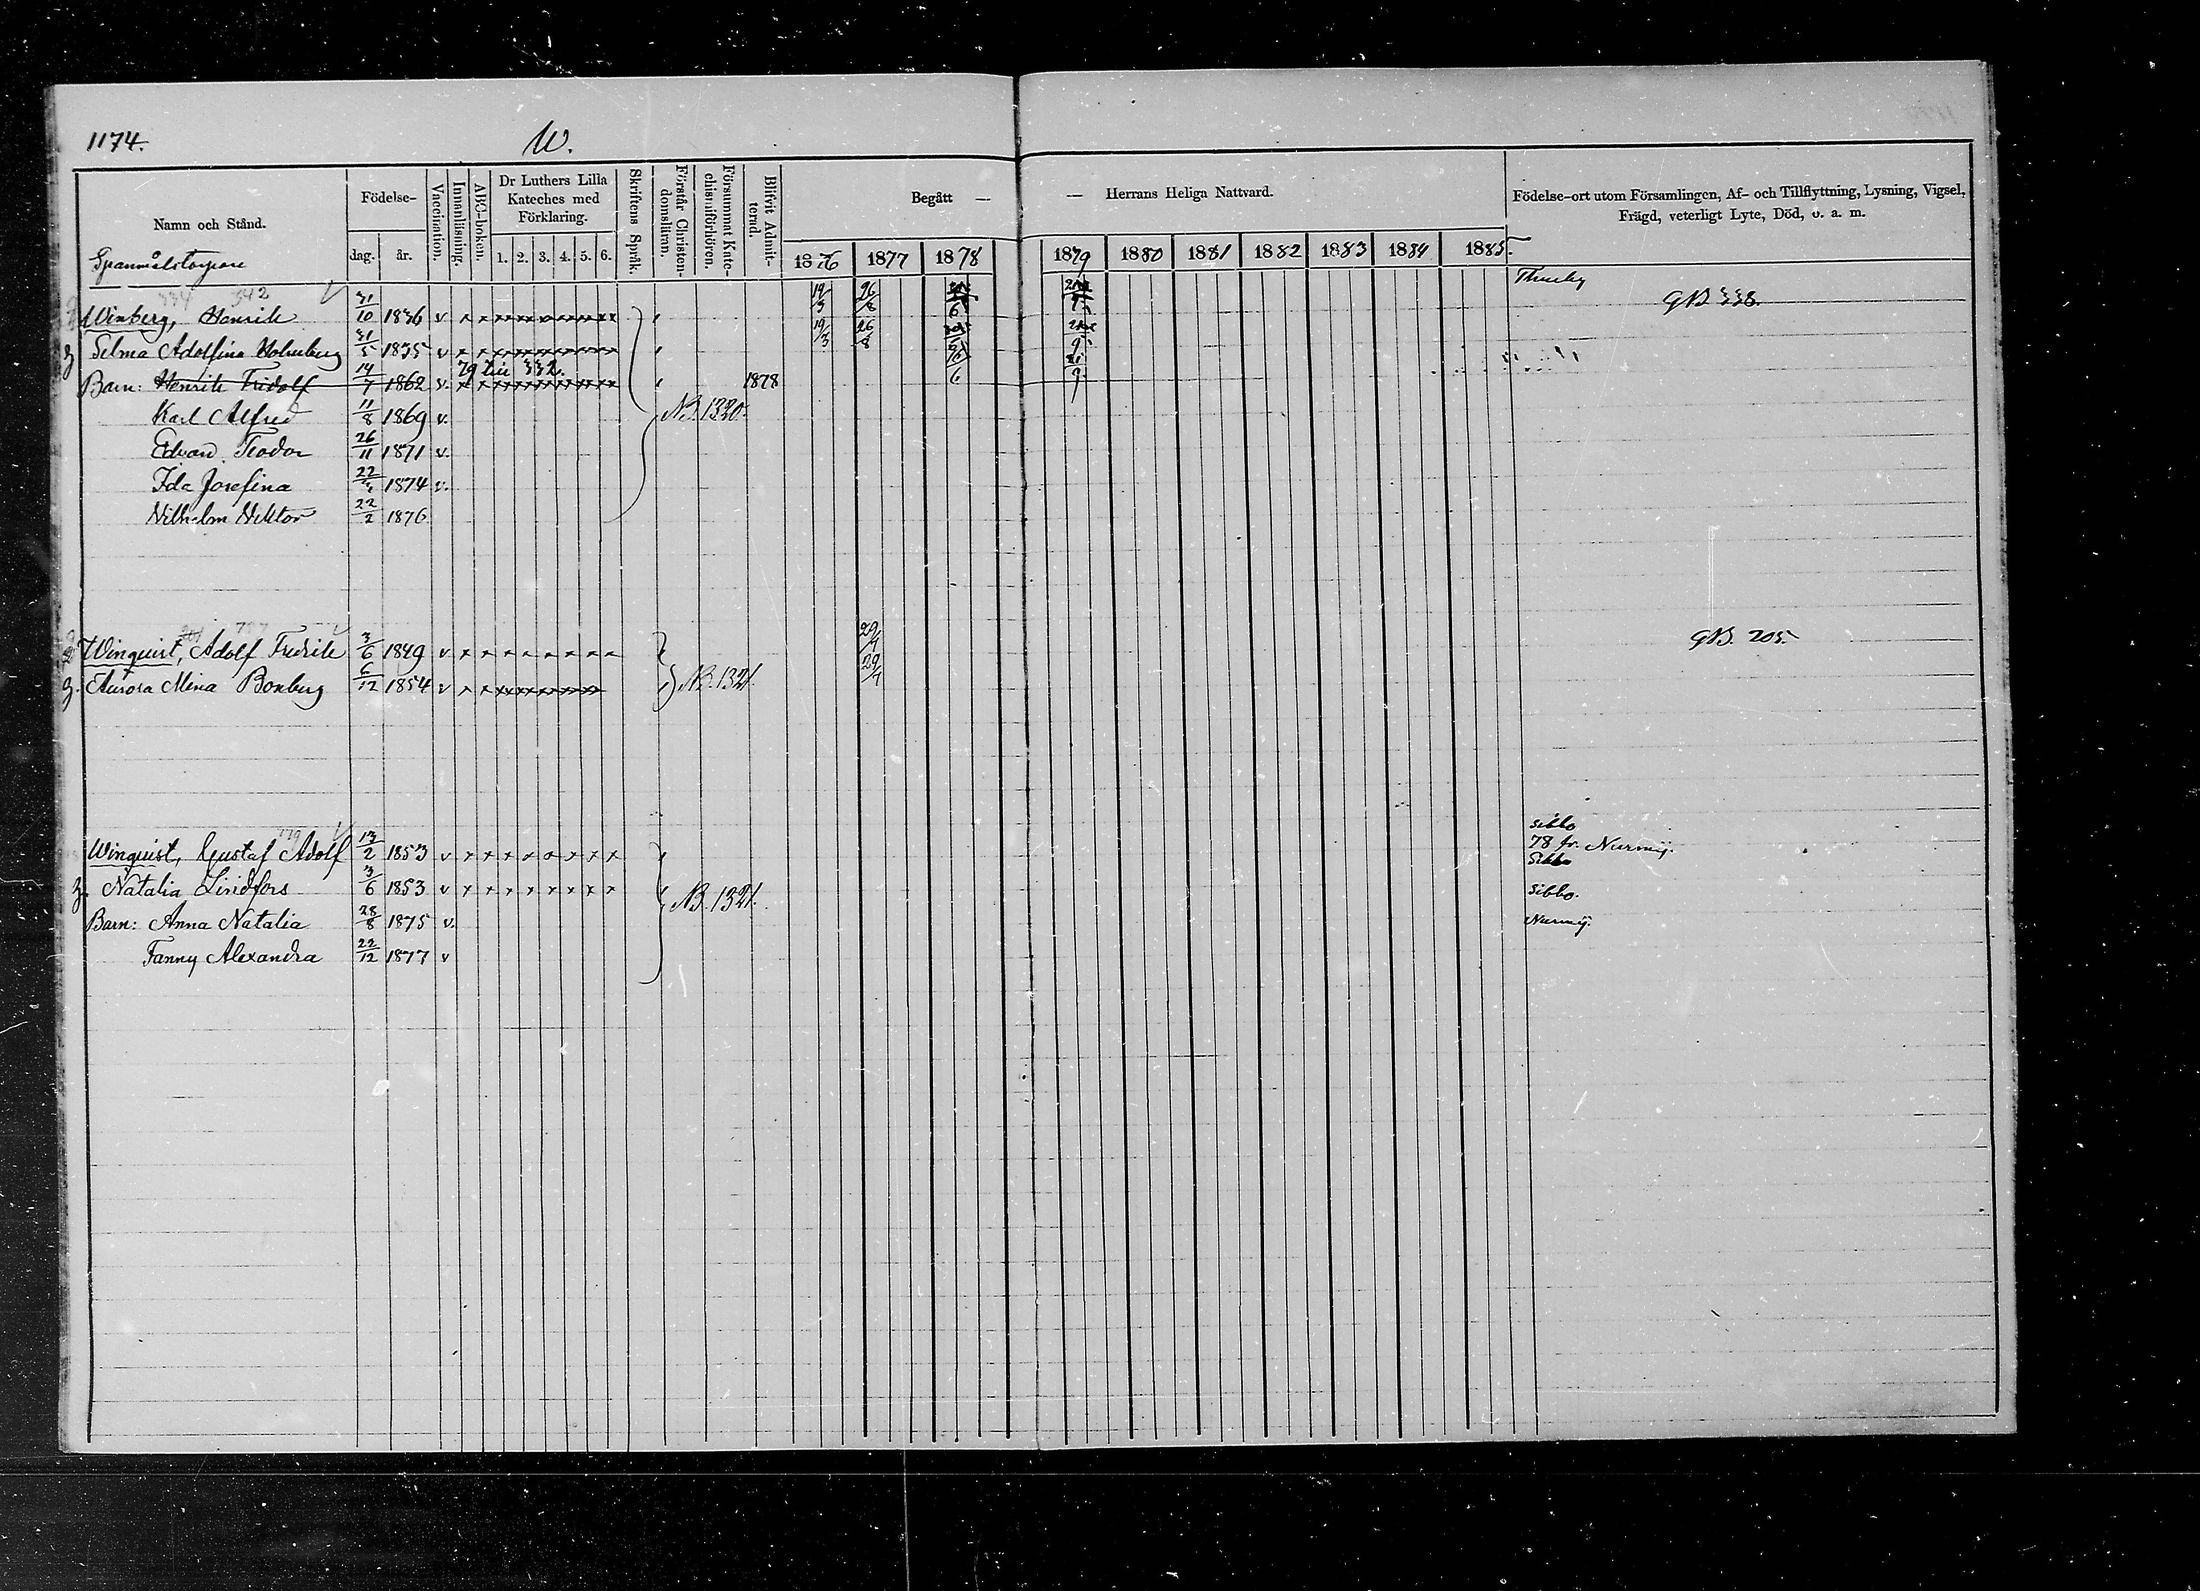 1174.
W.
Namn och Stånd.
Födelse-
dag.
år.
Vaccination.
Innanläsning.
ABC-boken.
Dr Luthers Lilla
Kateches med
Förklaring.
1. 2. 3. 4. 5. 6.
Skriftens Språk.
Förstår Christen-
domslitran.
Försummat Kate-
chismiförhören.
Blifvit Admit-
terad.
Begått —
— Herrans Heliga Nattvard.
Födelse-ort utom Församlingen, Af- och Tillflyttning, Lysning, Vigsel,
Frägd, veterligt Lyte, Död, o. a. m.
1876 1877 1878 1879 1880 1881 1882 1883 1884 1885.
Spannmålstorpare
Thusby
334 342
Winberg, Henrik 31/10 1836 v 19/3 26/8 GB 338.
Selma Adolfina Holmberg 31/5 1835 v 19/3 26/8
79 till 332.
Barn: Henrik Fridolf 14/7 1862 v. 1878
Karl Alfred 11/8 1869 v. NB. 1320.
Edvard Teodor 26/11 1871 v.
Ida Josefina 1874 v.
Vilhelm Viktor 22/2 1876
Winquist, Adolf Fredrik 3/6 1849 v 29/7 GB. 205.
Aurora Mina Boxberg 6/12 1854 v NB. 1321. 29/7
Sibbo
Winquist, Gustaf Adolf 13/2 1853 v 78 fr. Nurmij.
Sibbo
Natalia Lindfors 3/6 1853 v NB. 1321. Sibbo.
Barn: Anna Natalia 28/8 1875 v. Nurmij.
Fanny Alexandra 22/12 1877 v